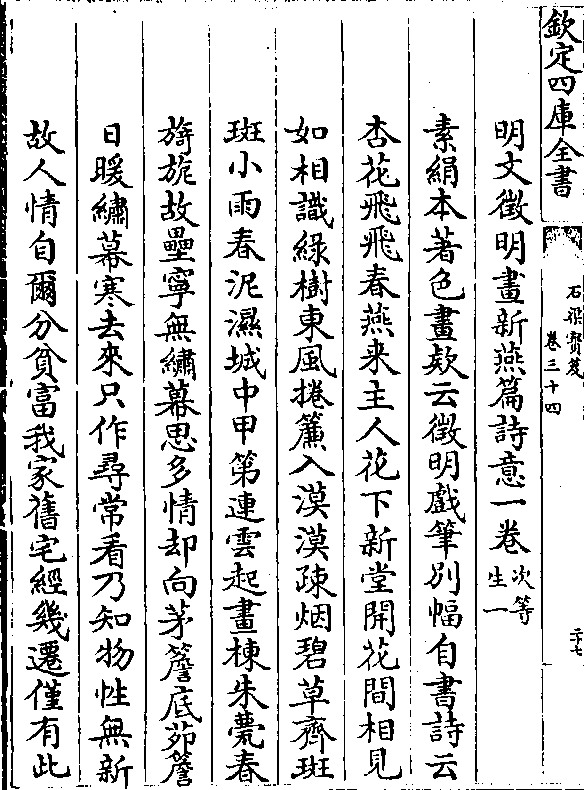 欽定四庫全書
石渠寶笈
卷三十四
二十七
明文徵明畫新燕篇詩意一卷次等
生一
素絹本著色畫款云徵明戲筆別幅自書詩云
杏花飛飛春燕来主人花下新堂開花間相見
如相識綠樹東風捲簾入漠漠疎烟碧草齊斑
斑小雨春泥濕城中甲第連雲起畫棟朱甍春
旖旎故壘寧無繡幕思多情却向茅簷底茆簷
日暖繡幕寒去來只作尋常看乃知物性無新
故人情自爾分貧富我家舊宅經幾遷僅有此